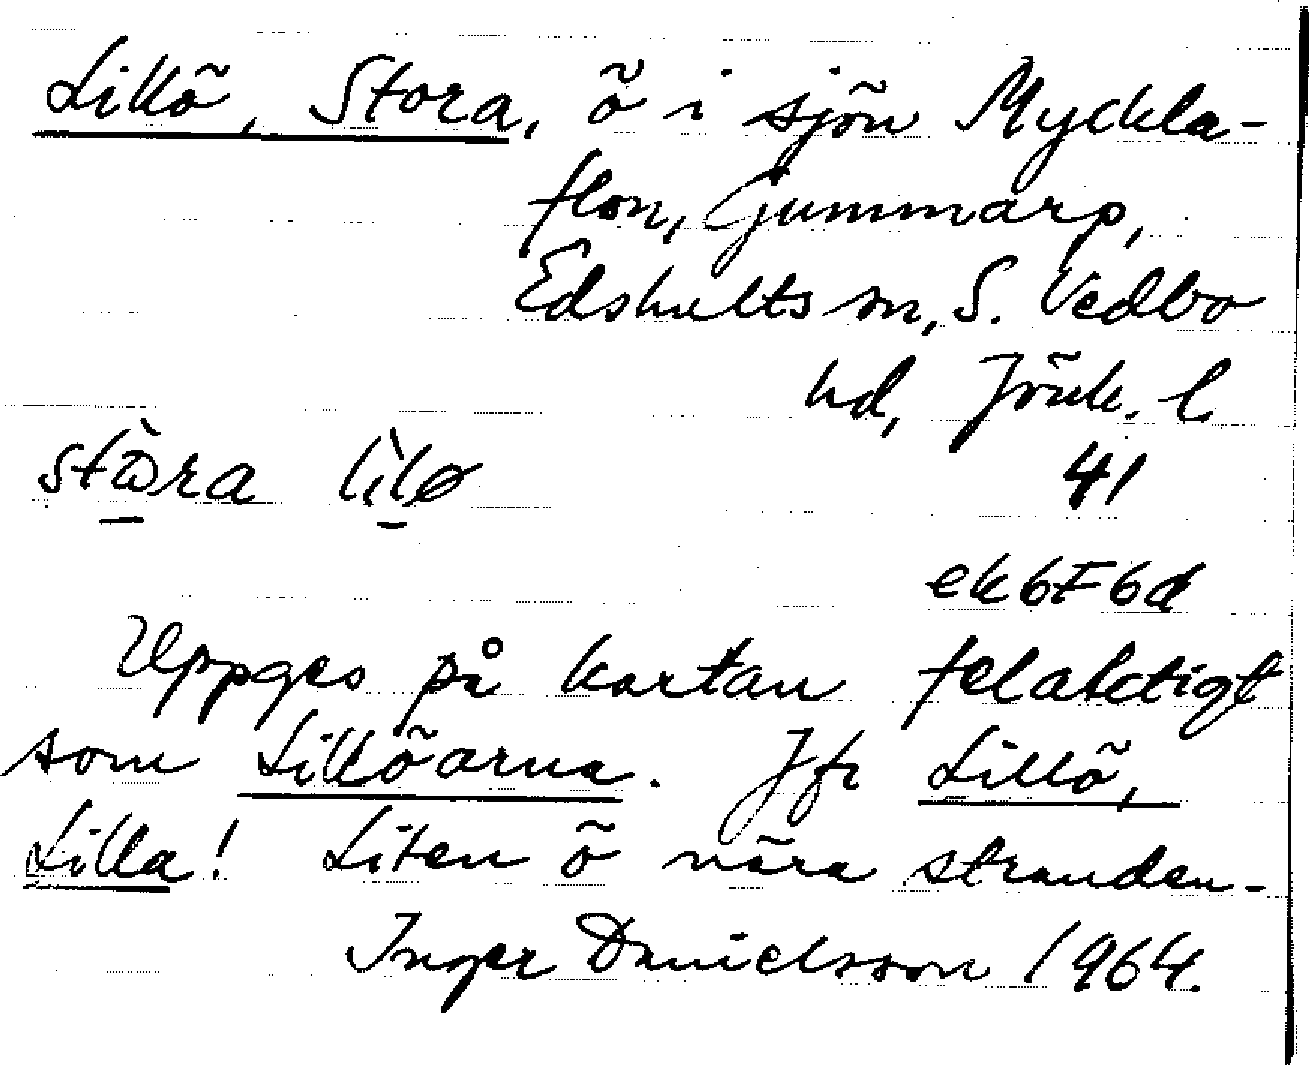 Lillö, Stora, ö i sjön Myckla-
flon, Gummarp,
Edshults sn, S. Vedbo
hd, Jönk. l
stὼra lìlø
41
ek6F6d
Uppges på kartan felaktigt
som Lillöarna. Jfr Lillö,
Lilla! Liten ö nära stranden.
Inger Danielsson 1964.